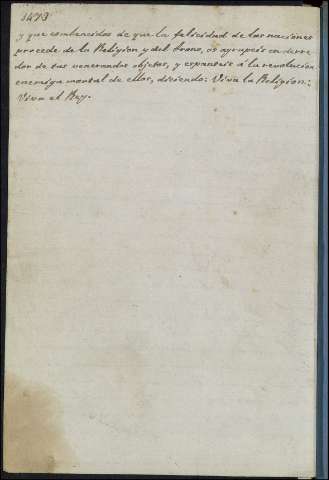 1473
y que combencidos de que la felicidad de las naciones
procede de la Religion y del trono, os agrupeis en derre-
dor de tan venerandos objetos, y espanteis á la revolucion
enemiga mortal de ellos, diciendo: Viva la Religion:
Viva el Rey.